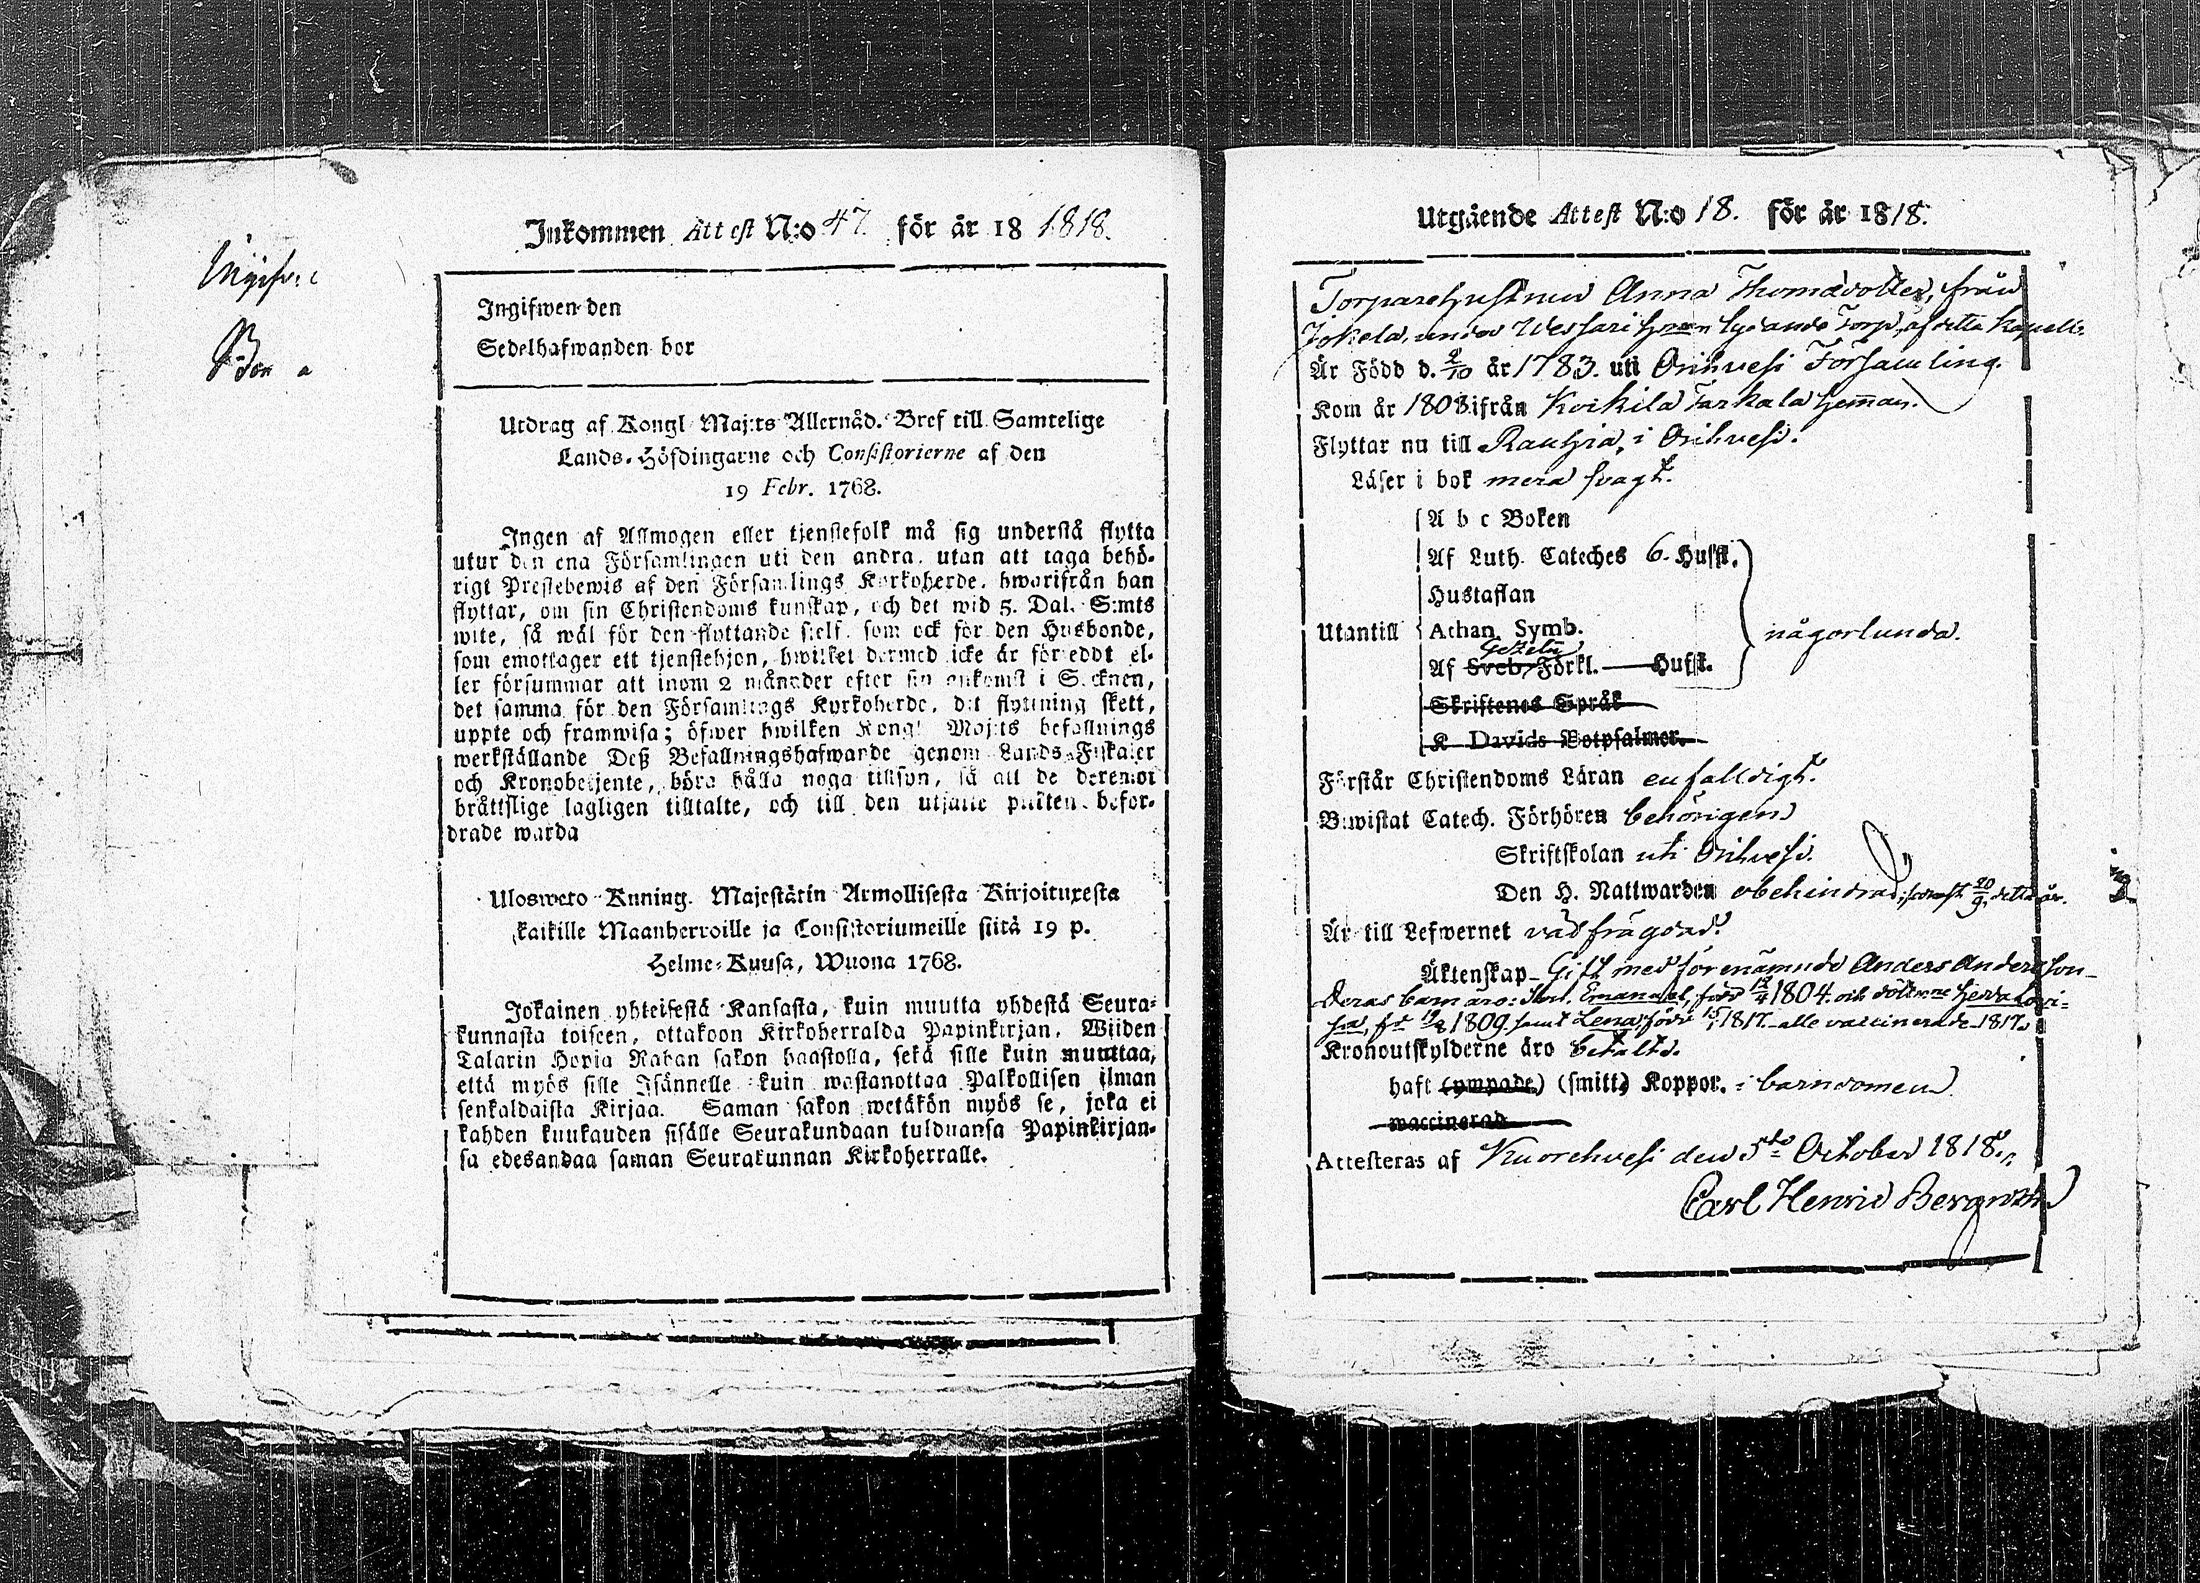 Inkommen Attest N:o 47. för år 18 1818.
Ingifwen den
Sedelhafwanden bor
Utdrag af Kongl Maj:ts Allernåd. Bref till Samtelige
Lands-Höfdingarne och Consistorierne af den
19 Febr. 1768.
Ingen af Allmogen eller tjenstefolk må sig understå flytta
utur den ena Församlingen uti den andra, utan att taga behö-
rigt Prestebewis af den Församlings Kyrkoherde, hwarifrån han
flyttar, om sin Christendoms kunskap, och det wid 5. Dal. S:mts
wite, så wäl för den flyttande sjelf, som ock för den Husbonde,
som emottager ett tjenstehjon, hwilket dermed icke är försedt el-
ler försummar att inom 2 månader efter sin ankomst i Socknen,
det samma för den Församlings Kyrkoherde, dit flyttning skett,
uppte och framwisa; öfwer hwilken Kongl Maj:ts befallnings
werkställande Deß Befallningshafwande genom Lands-Fiskaler
och Kronobetjente, böra hålla noga tillsyn, så att de deremot
bråttslige lagligen tilltalte, och till den utsatte plikten befor-
drade warda
Ulosweto Kuning. Majestätin Armollisesta Kirjoituxesta
kaikille Maanherroille ja Consistoriumeille siitä 19 p.
Helme-Kuusa, Wuona 1768.
Jokainen yhteisestä Kansasta, kuin muutta yhdestä Seura-
kunnasta toiseen, ottakoon Kirkoherralda Papinkirjan, Wiiden
Talarin Hopia Rahan sakon haastolla, sekä sille kuin muuttaa,
että myös sille Isännelle kuin wastanottaa Palkollisen ilman
senkaldaista Kirjaa. Saman sakon wetäkön myös se, joka ei
kahden kuukauden sisälle Seurakundaan tulduansa Papinkirjan-
sa edesandaa saman Seurakunnan Kirkoherralle.
Utgående Attest N:o 18. för år 1818.
Torparehustrun Anna Thomædotter, från
Jokela, under Wessari hemman lydande Torp, af detta Kapell.
Är Född d. 2/10 år 1783. uti Orihvesi Församling.
Kom år 1808. ifrån Koikila Tarkala hemman.
Flyttar nu till Rauhia, i Orihvesi.
Läser i bok mera svagt.
A b c Boken
Af Luth. Cateches 6. Hufst.
Hustaflan
Utantill Athan. Symb. någorlunda.
Gezelii
Af Sveb. Förkl. Hufst.
Skriftenes Språk
K Davids Botpsalmer.
Förstår Christendoms Läran enfalldigt.
Bewistat Catech. Förhören behörigen
Skriftskolan uti Orihvesi.
Den H. Nattwarden obehindrad, senast 20/9 detta år.
Är till Lefwernet välfrägdad.
Äktenskap Gift med förenämnde Anders Andersson
Deras barn äro: Son. Emanuel, född 12/4 1804. och döttrarne Hedda Lovi-
sa, fd 19/8 1809. samt Lena, född 15/1 1817. alle vaccinerade 1817.
Kronoutskylderne äro betalta.
haft (ympade) (smitt) Koppor. i barndomen
waccinerad
Attesteras af Kuorehvesi den 5te October 1818.
Carl Henric Bergroth